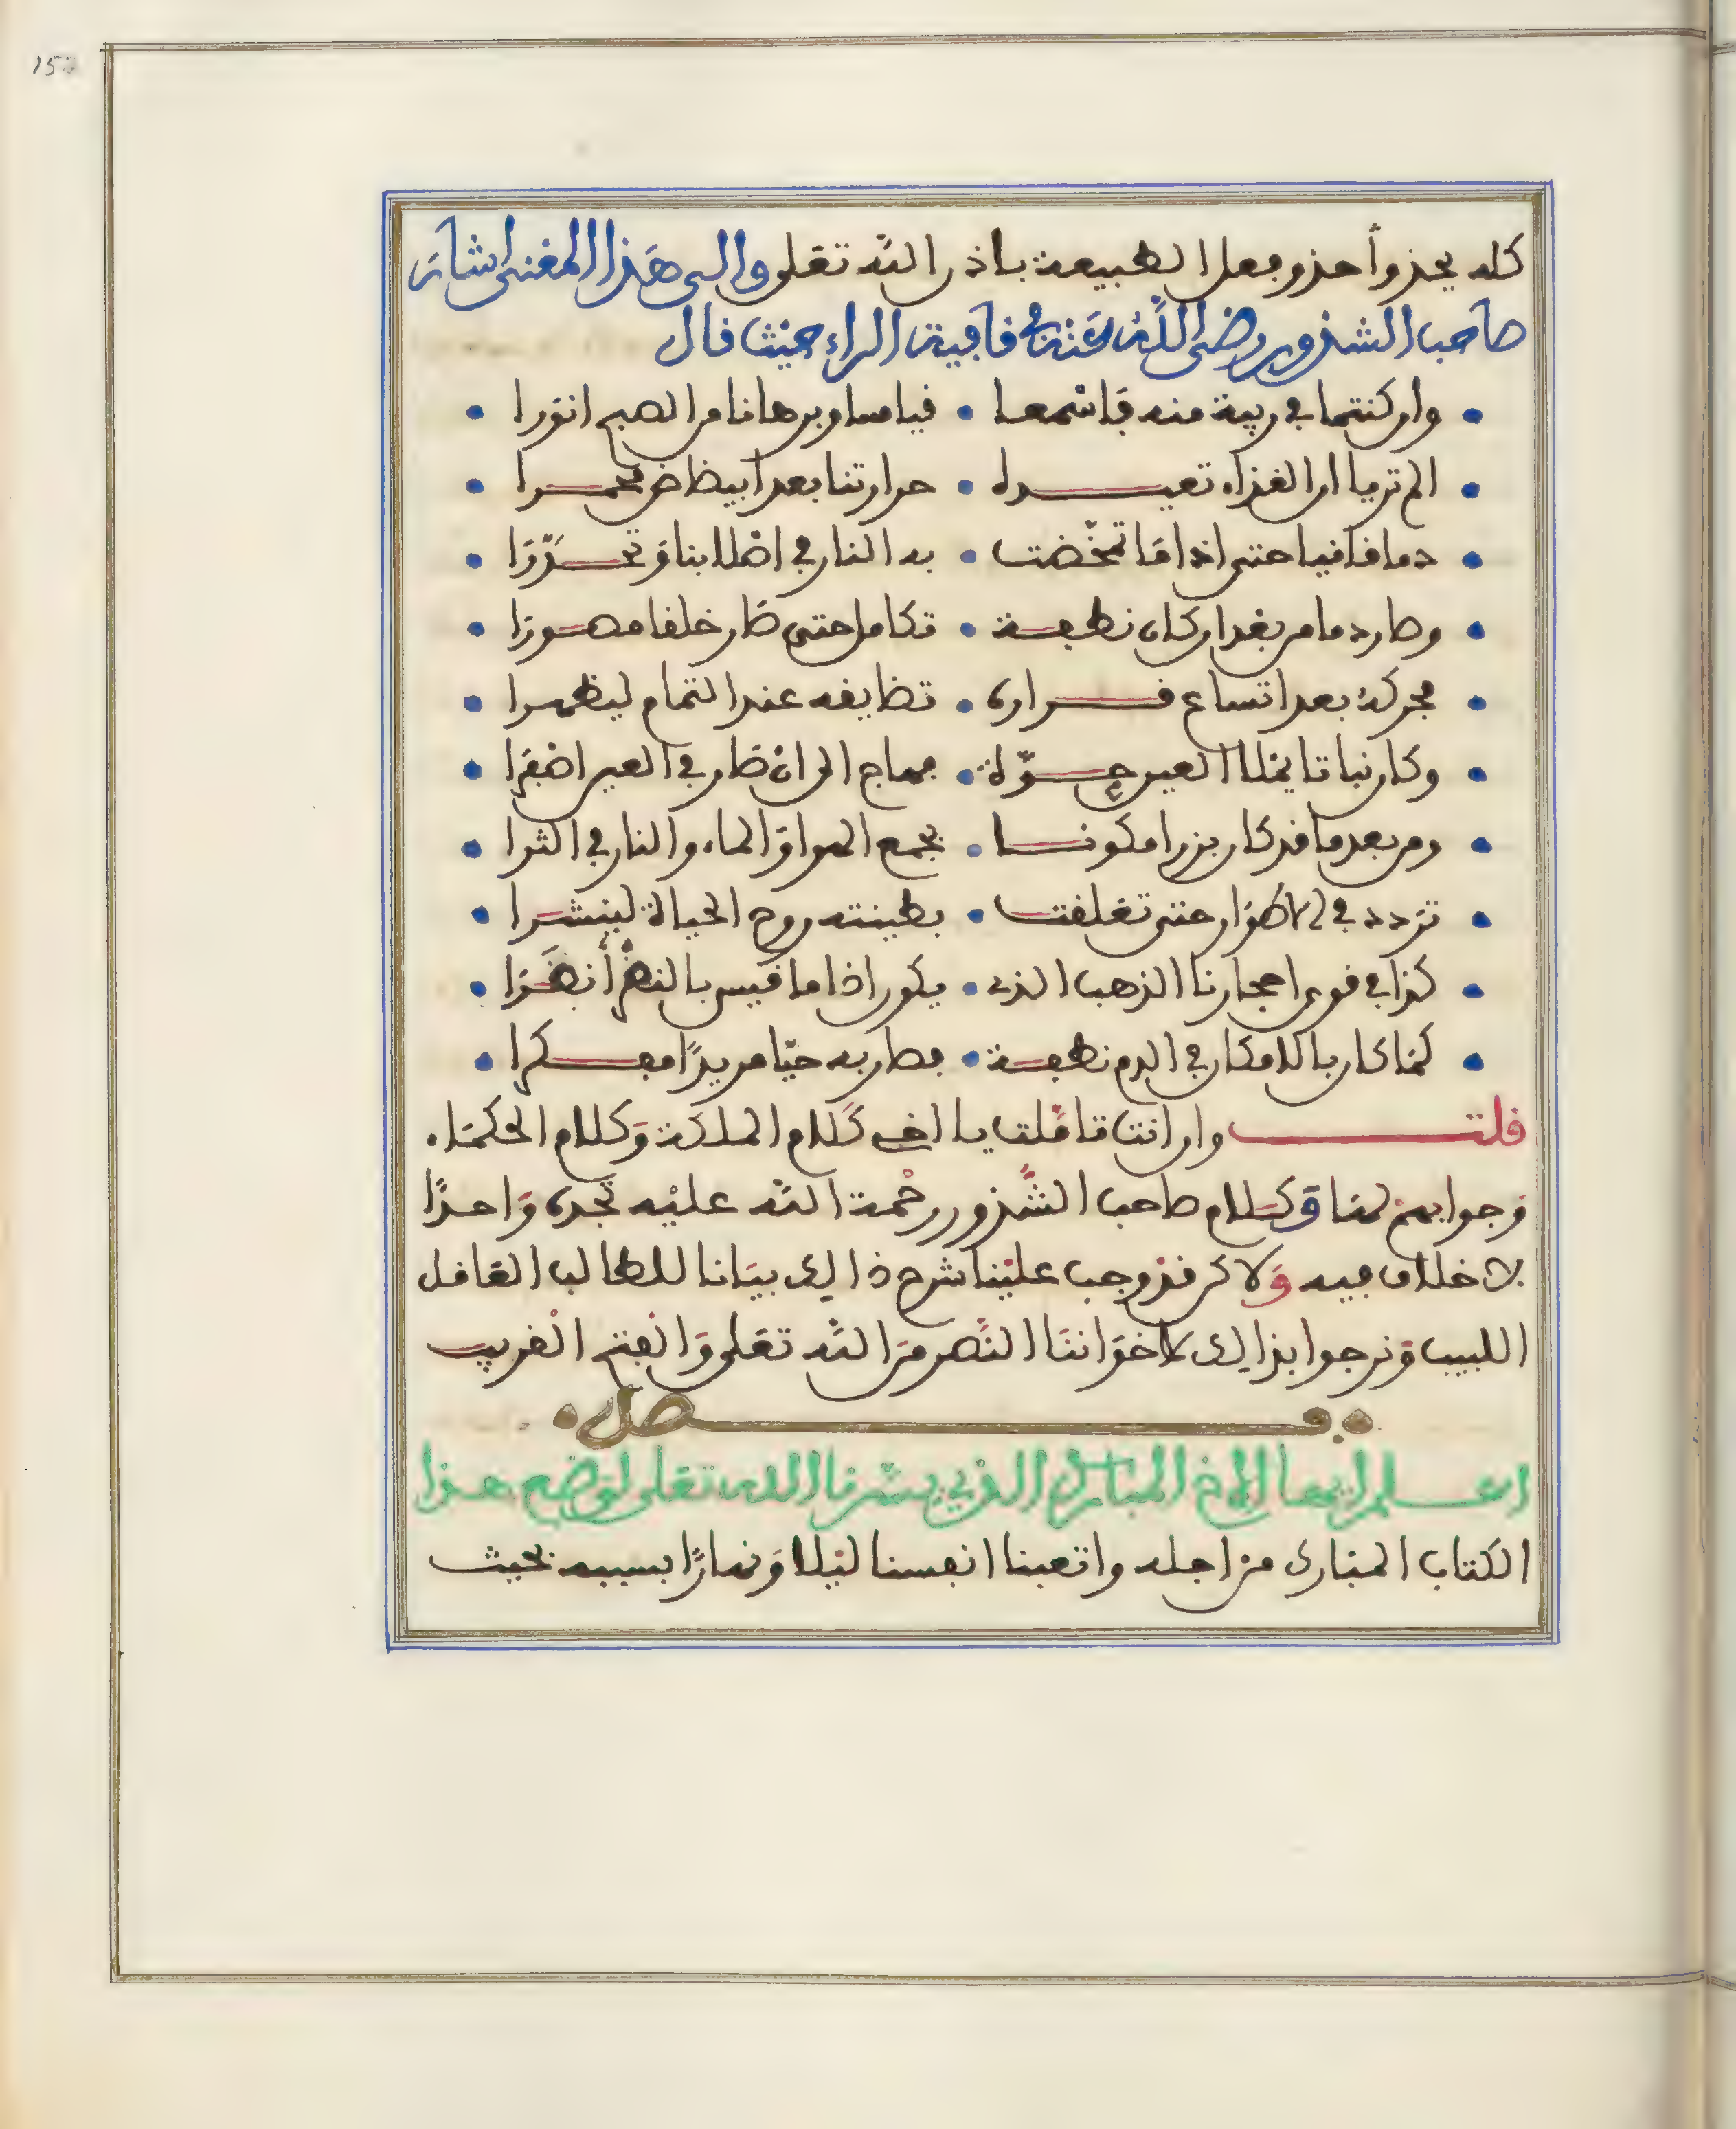 كله يحذوا حذو فعل الطبيعة باذن الله تعلى والى هذا المعنى اشار
صاحب الشذور رضى الله عنه في قافية الراء حيث قال
وان كنتما في ريبة منه فاسمعا • قياسا وبرهانا من الصبح انورا
الم تريا ان الغذاء تعيـــده • حرارتنا بعد ابيضاض محمـــرا
دما قانيا حتى اذا ما تمخضت • به النار في اصلابنا وتحـــررا
وصار دما من بعد ان كان نطفة • تكامل حتى صار خلقا مصورا
محركه بعد اتساع قـــراره • تضايقه عند التمام ليظهرا
وكان نباتا يملا العين حـــوة • فهاج الى ان صار في العين اصفرا
ومن بعد ما قد كان بزرا مكونـــا • بجمع الهوا والماء والنار في الثرا
تردد في الاطوار حتى تعلقت • بطينته روح الحياة لينشرا
كذا في قوى احجارنا الذهب الذي • يكون اذا ما قيس بالنضر انضرا
كما كان بالامكان في الدم نطفة • فصار به حيا مريدا مفكرا
قلت وان انت تاملت يا اخي كلام الملكة وكلام الحكماء
وجوابهم لها وكلام صاحب الشذور رحمة الله عليه تجده واحدا
لا خلاف فيه ولاكن قد وجب علينا شرح ذالك بيانا للطالب العاقل
اللبيب ونرجوا بذالك لاخواننا النصر من الله تعلى والفتح القريب
فـــصل
اعـــلم ايها الاخ المبارك الذي يسرنا الله تعلى لوضع هذا
الكتاب المبارك من اجله واتعبنا انفسنا ليلا ونهارا بسببه بحيث